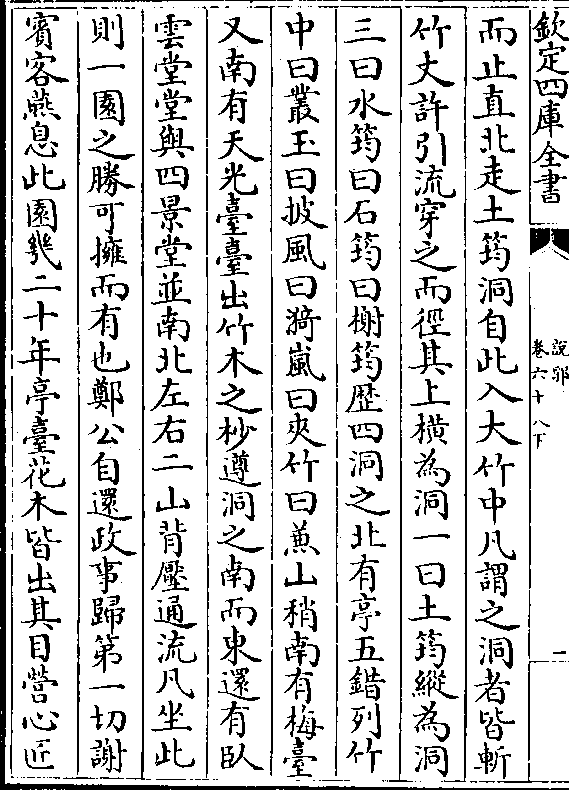 欽定四庫全書
說郛
卷六十八下
一
而止直北走土筠洞自此入大竹中凡謂之洞者皆斬
竹丈許引流穿之而徑其上橫為洞一曰土筠縱為洞
三曰水筠曰石筠曰榭筠歴四洞之北有亭五錯列竹
中曰叢玉曰披風曰漪嵐曰夾竹曰蒹山稍南有梅臺
又南有天光臺臺出竹木之杪遵洞之南而東還有臥
雲堂堂與四景堂並南北左右二山背壓通流凡坐此
則一園之勝可擁而有也鄭公自還政事歸第一切謝
賓客燕息此園幾二十年亭臺花木皆出其目營心匠